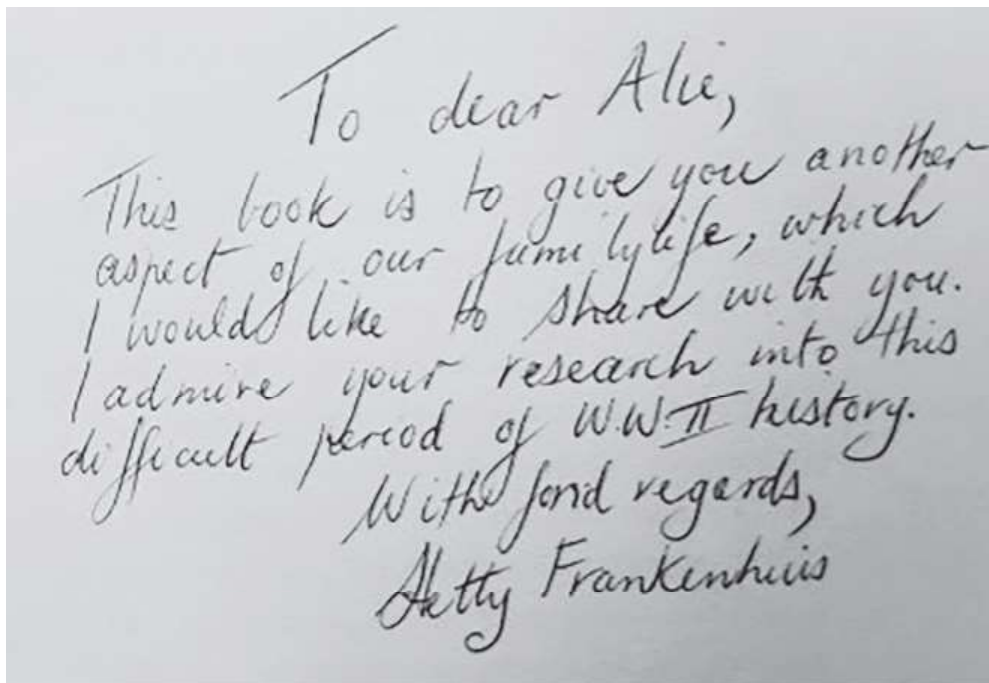 To dear Alie,
This book is to give you another
aspect of our familylife, which
I would like to share with you.
I admire your research into this
difficult period of W.W. II history.
With fond regards,
Hetty Frankenhuis